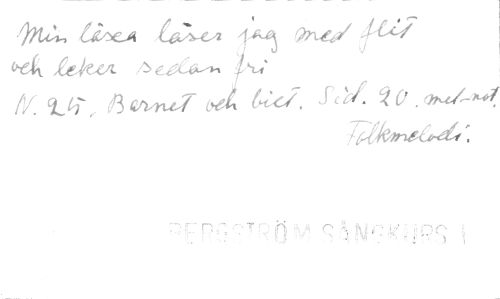 Min läxa läser jag med flit
och leker sedan fri
N. 25, Barnet och biet. Sid. 20. mel-not.
Folkmelodi.
BERGSTRÖM SÅNGKURS I